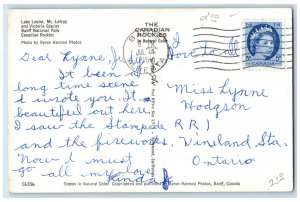 Lake Louise, Mt. Lefroy
and Victoria Glacier
Banff National Park
Canadian Rockies
Photo by Byron Harmon Photos
THE
CANADIAN
ROCKIES
In Natural Color
Dear Lynne,
It been a
long time scene
I wrote you. It
beautiful out here
I saw the Stampede
and the fireworks.
Now I must
go all my love
Miss Lynne
Hodgson
R R 1
Vineland Sta.
Ontario
C6356
Scenes in Natural Color, Copyrighted and published by Byron Harmon Photos, Banff, Canada